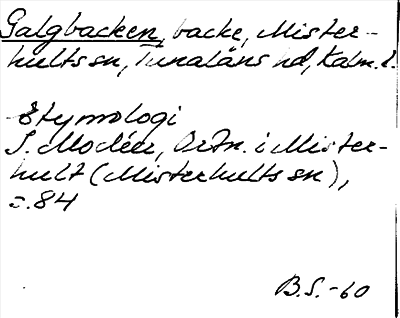 Galgbacken, backe, Mister-
hults sn, Tunaläns hd, Kalm. l.
Etymologi
I. Modéer, Ortn. i Mister-
hult (Misterhults sn),
s. 84
B.S.-60